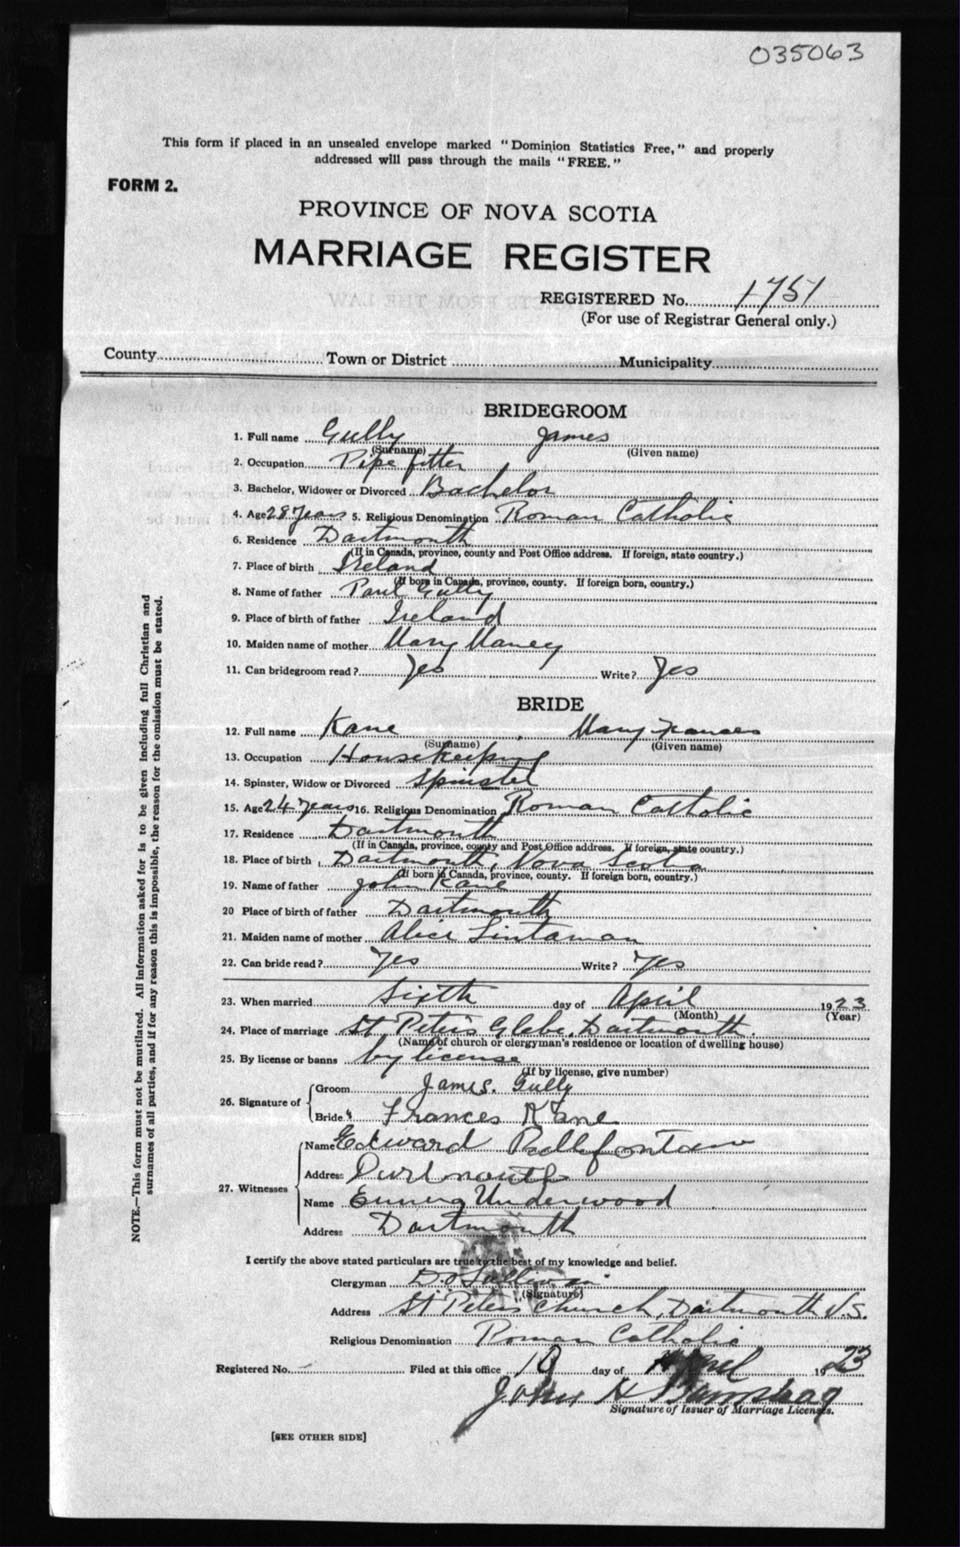 035063
This form if placed in an unsealed envelope marked "Dominion Statistics Free," and properly
addressed will pass through the mails "FREE."
FORM 2.
PROVINCE OF NOVA SCOTIA
MARRIAGE REGISTER
REGISTERED No. 1751
(For use of Registrar General only.)
County Town or District Municipality
BRIDEGROOM
1. Full name Gully James
(Surname) (Given name)
2. Occupation Pipe fitter
3. Bachelor, Widower or Divorced Bachelor
4. Age 28 years 5. Religious Denomination Roman Catholic
6. Residence Dartmouth
(If in Canada, province, county and Post Office address. If foreign, state country.)
7. Place of birth Ireland
(If born in Canada, province, county. If foreign born, country.)
8. Name of father Paul Gully
9. Place of birth of father Ireland
10. Maiden name of mother Mary
11. Can bridegroom read? Yes Write? Yes
BRIDE
12. Full name Kane Mary Frances
(Surname) (Given name)
13. Occupation Housekeeping
14. Spinster, Widow or Divorced Spinster
15. Age 24 years 16. Religious Denomination Roman Catholic
17. Residence Dartmouth
(If in Canada, province, county and Post Office address. If foreign, state country.)
18. Place of birth Dartmouth, Nova Scotia
(If born in Canada, province, county. If foreign born, country.)
19. Name of father John Kane
20 Place of birth of father Dartmouth
21. Maiden name of mother Alice
22. Can bride read? Yes Write? Yes
23. When married Sixth day of April 1923
(Month) (Year)
24. Place of marriage St Peter's Glebe, Dartmouth.
(Name of church or clergyman's residence or location of dwelling house)
25. By license or banns by license
(If by license, give number)
26. Signature of
Groom James. Gully
Bride Frances Kane
27. Witnesses
Name Edward
Address Dartmouth
Name Underwood
Address Dartmouth
I certify the above stated particulars are true to the best of my knowledge and belief.
Clergyman D. O'Sullivan
(Signature)
Address St Peter's Church, Dartmouth N.S.
Religious Denomination Roman Catholic
Registered No. Filed at this office 10 day of April 1923
John H
Signature of Issuer of Marriage Licenses.
[SEE OTHER SIDE]
NOTE.—This form must not be mutilated. All information asked for is to be given including full Christian and
surnames of all parties, and if for any reason this is impossible, the reason for the omission must be stated.